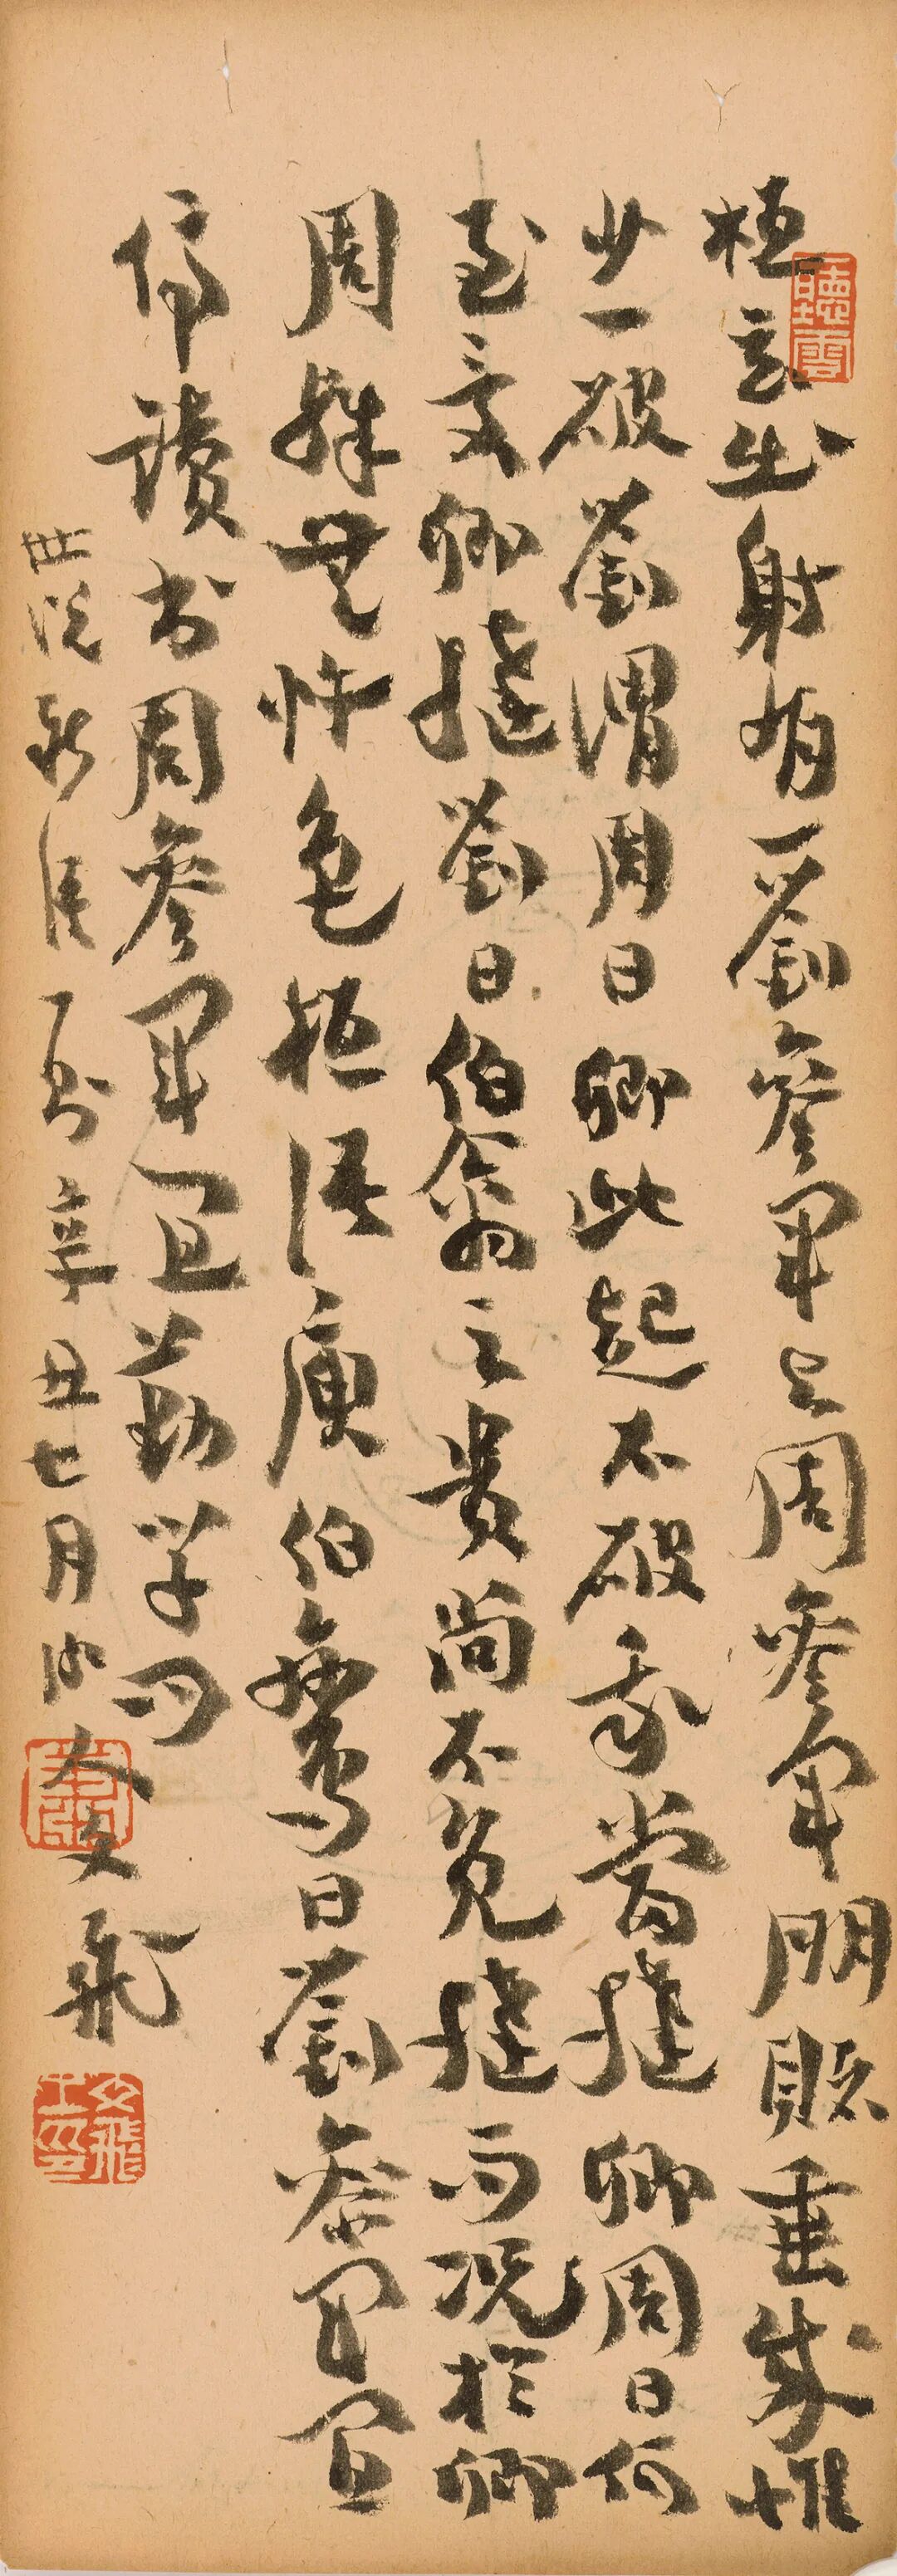 桓玄出射有一劉參軍与周參軍朋賭垂成惟
少一破劉謂周曰卿此起不破我當撻卿周曰何
至受卿撻劉曰伯禽之貴尚不免撻而況於卿
周殊無忤色桓語庾伯鸞曰劉參軍宜
停讀書周參軍宜勤學問
世說新語一則辛丑七月文飛
聽雲